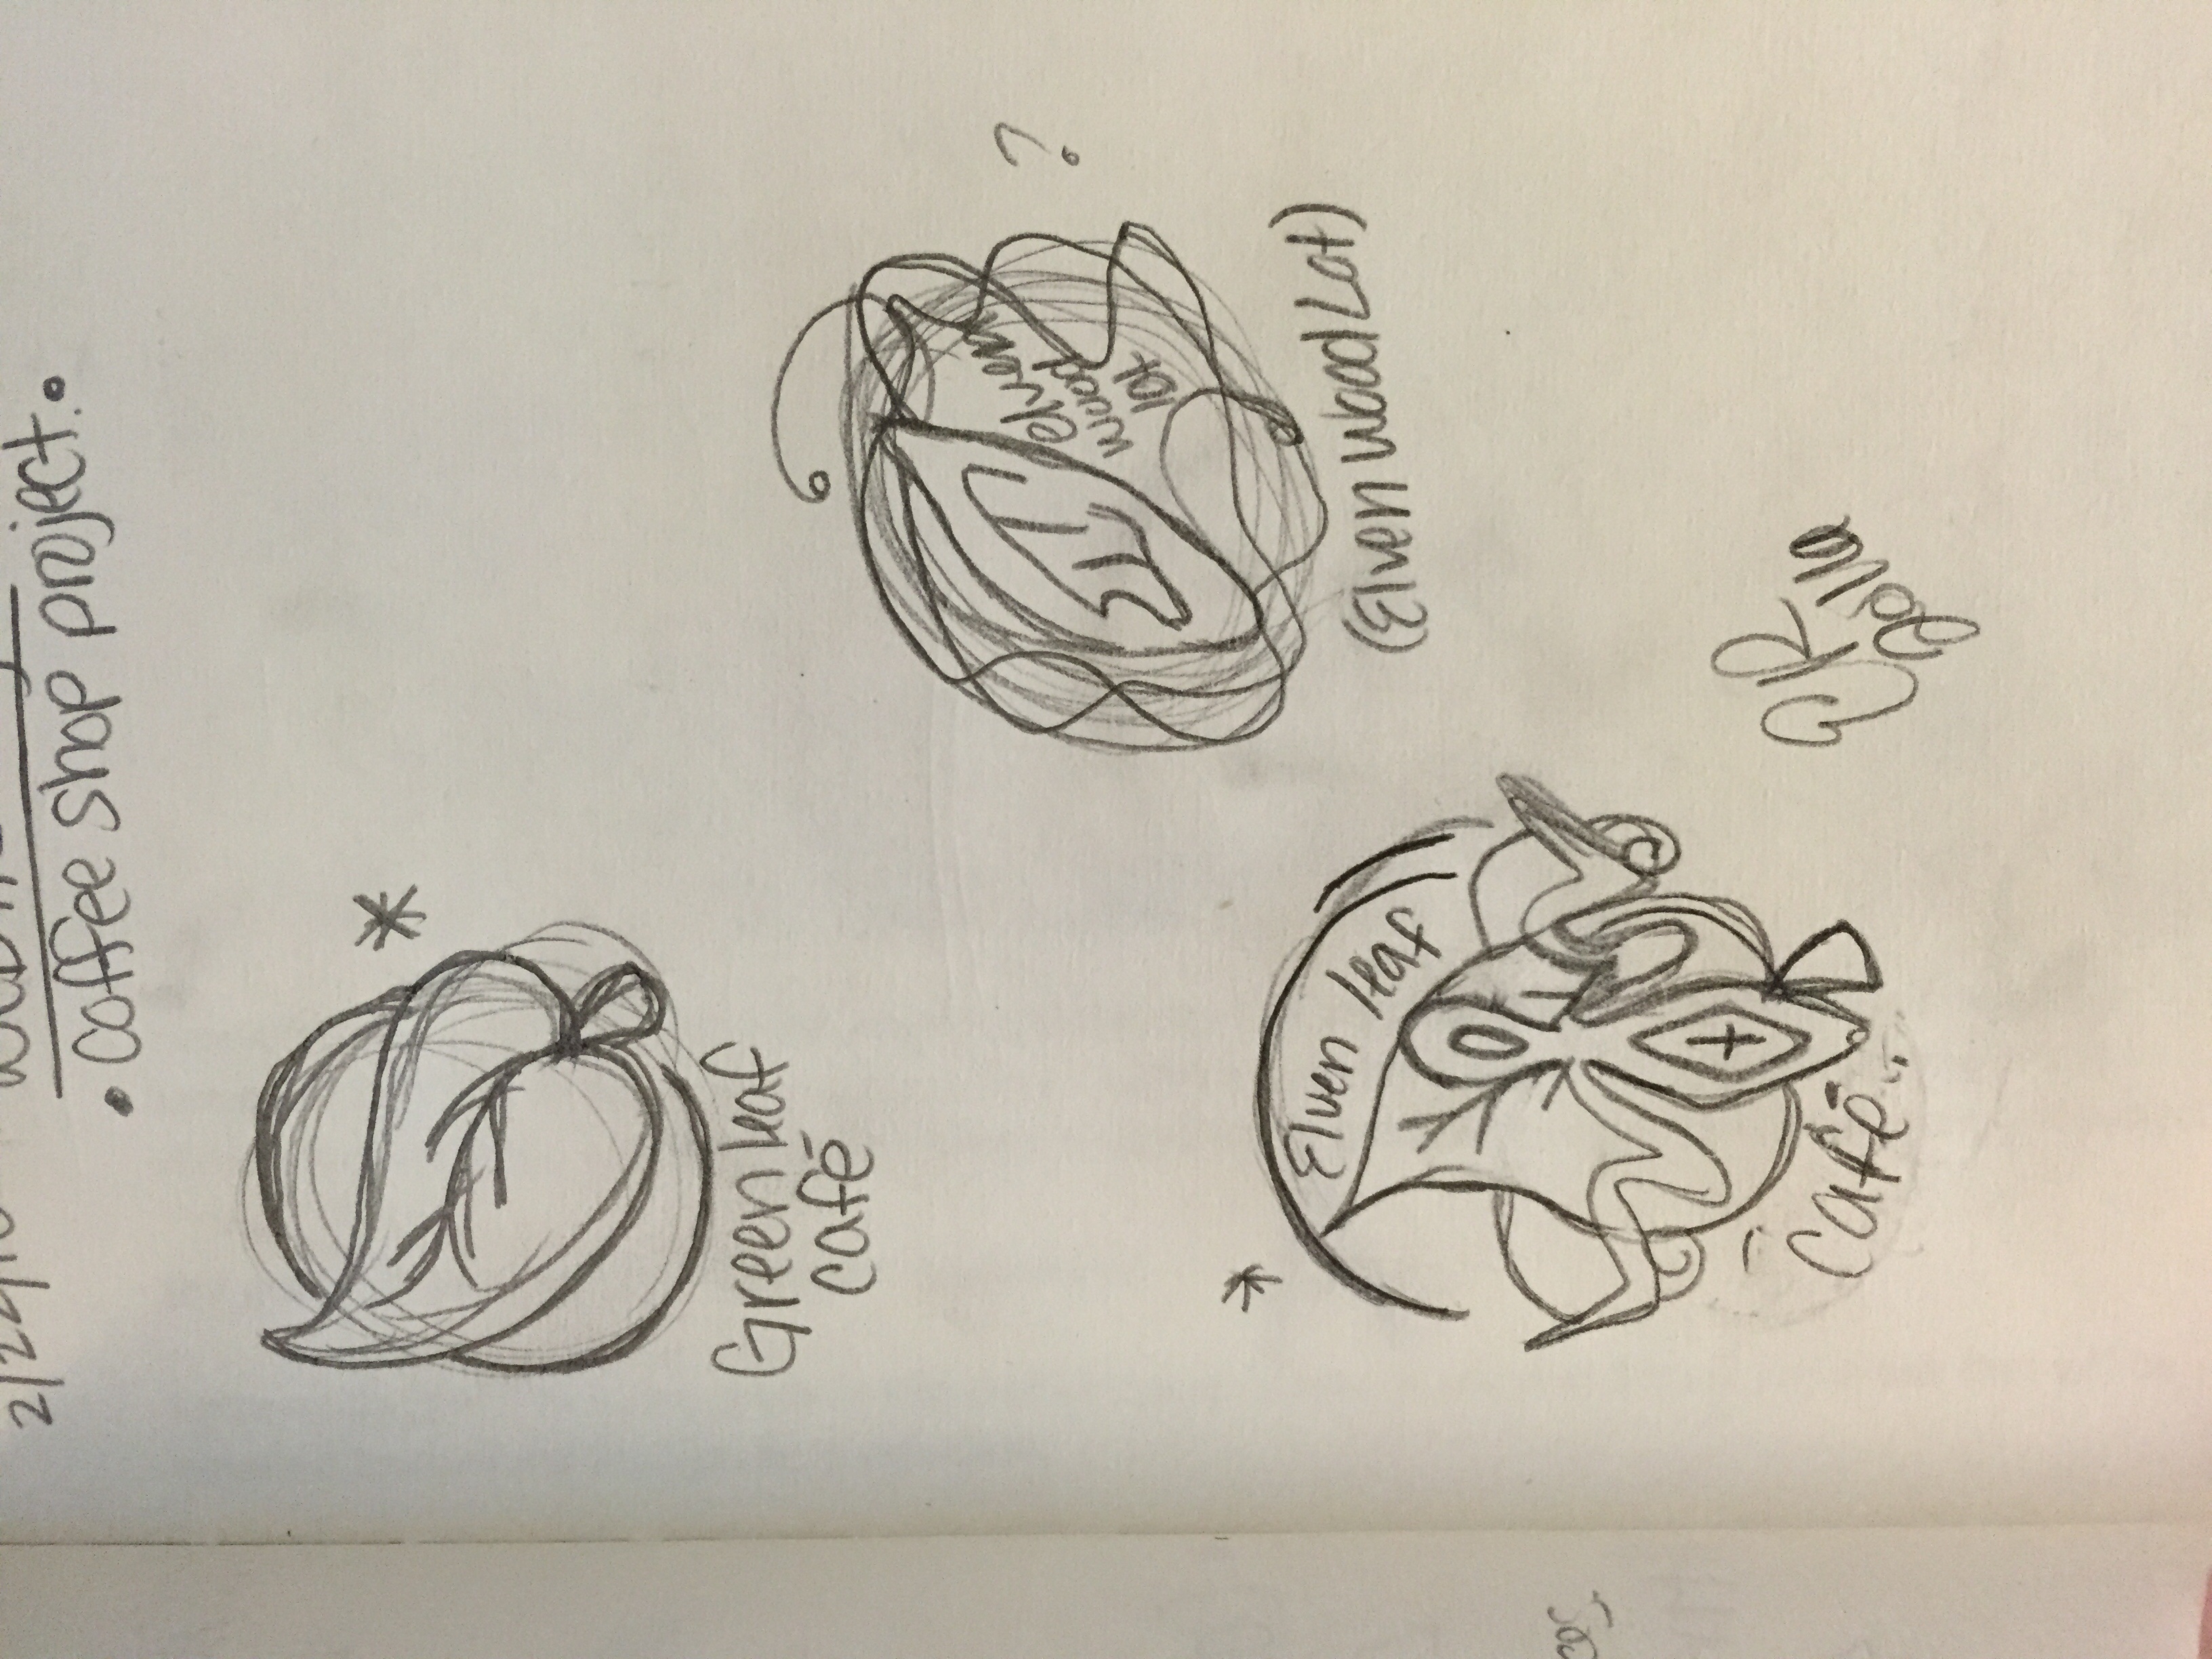 • Coffee shop project. •
Green leaf
café
elven
wood
lot
(Elven Wood Lot)
Elven leaf
café
ER